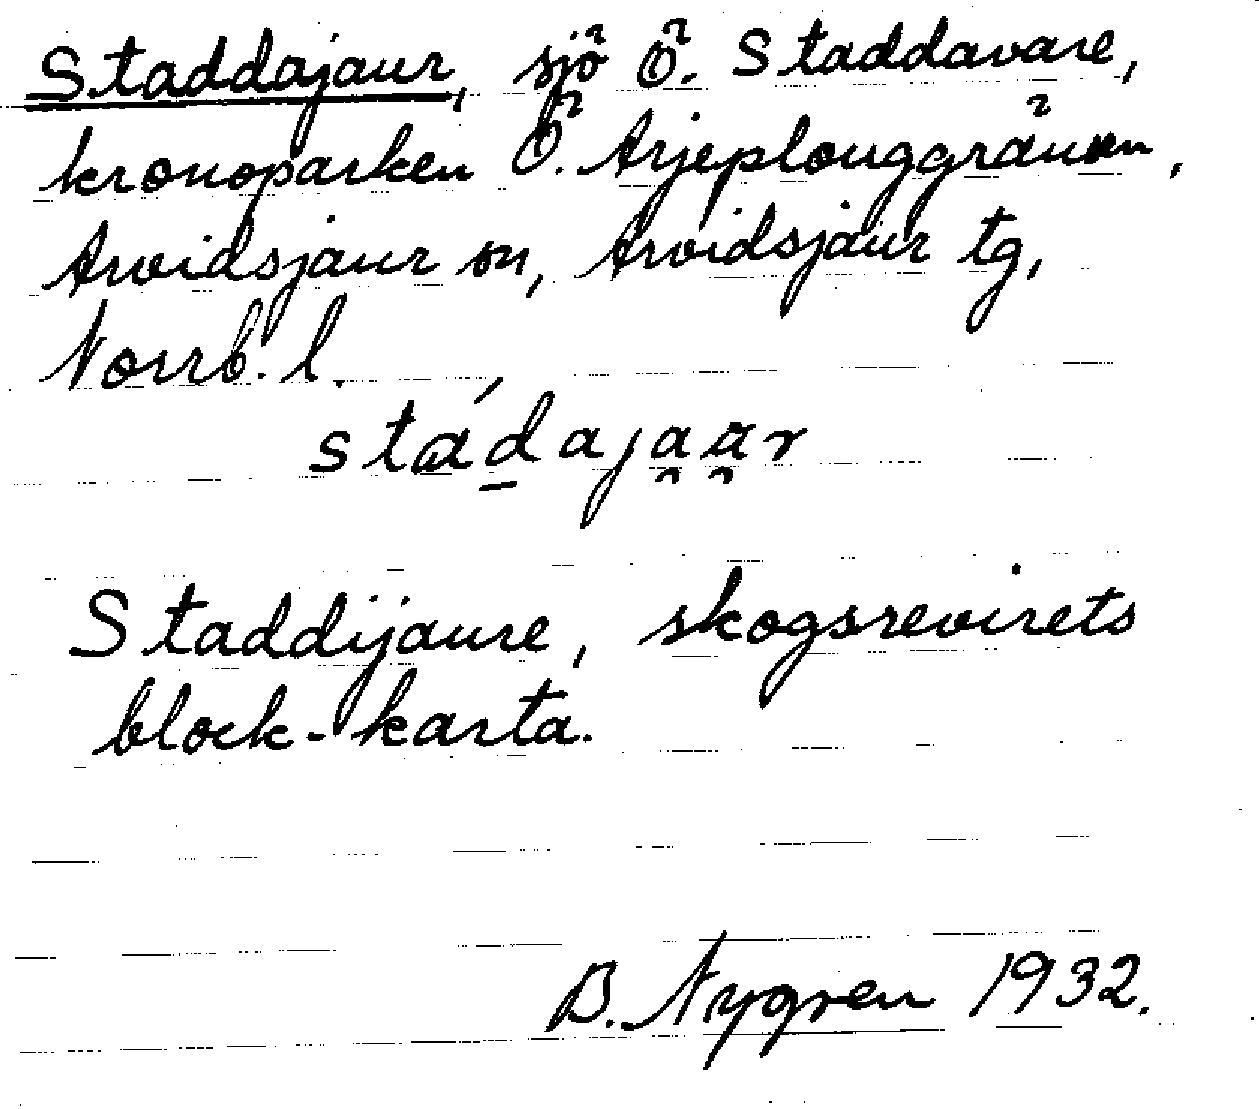 Staddajaur, sjö Ö. Staddavare,
kronoparken Ö. Arjeplouggränsen,
Arvidsjaur sn, Arvidsjaur tg,
Norrb. l.
stád̲aja̯a̯r
Staddijaure, skogsrevirets
block-karta.
B. Nygren 1932.